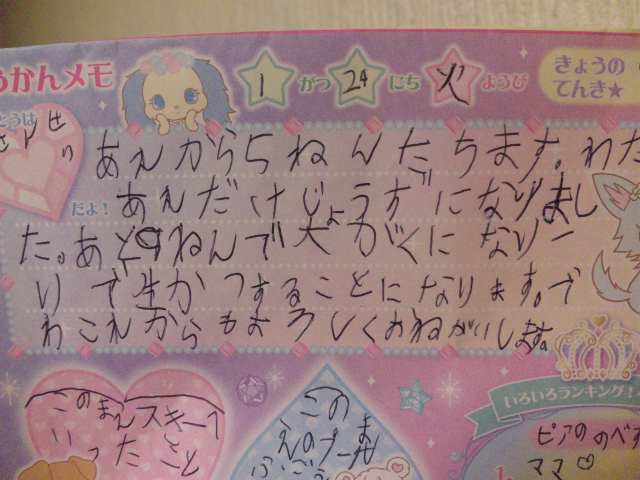 うかんメモ
1 がつ 24 にち 火 ようび
きょうの
てんき★
とうは
せり
だよ!
あれから5ねんたちます。わた
あんだけじょうずになりまし
た。あと9ねんで大がくになり一
りで生かつすることになります。で
わこれからもよろしくおねがいします。
このまえスキーへ
いったこと
この
まえのプール
いろいろランキング!
ピアののべす
ママ♡